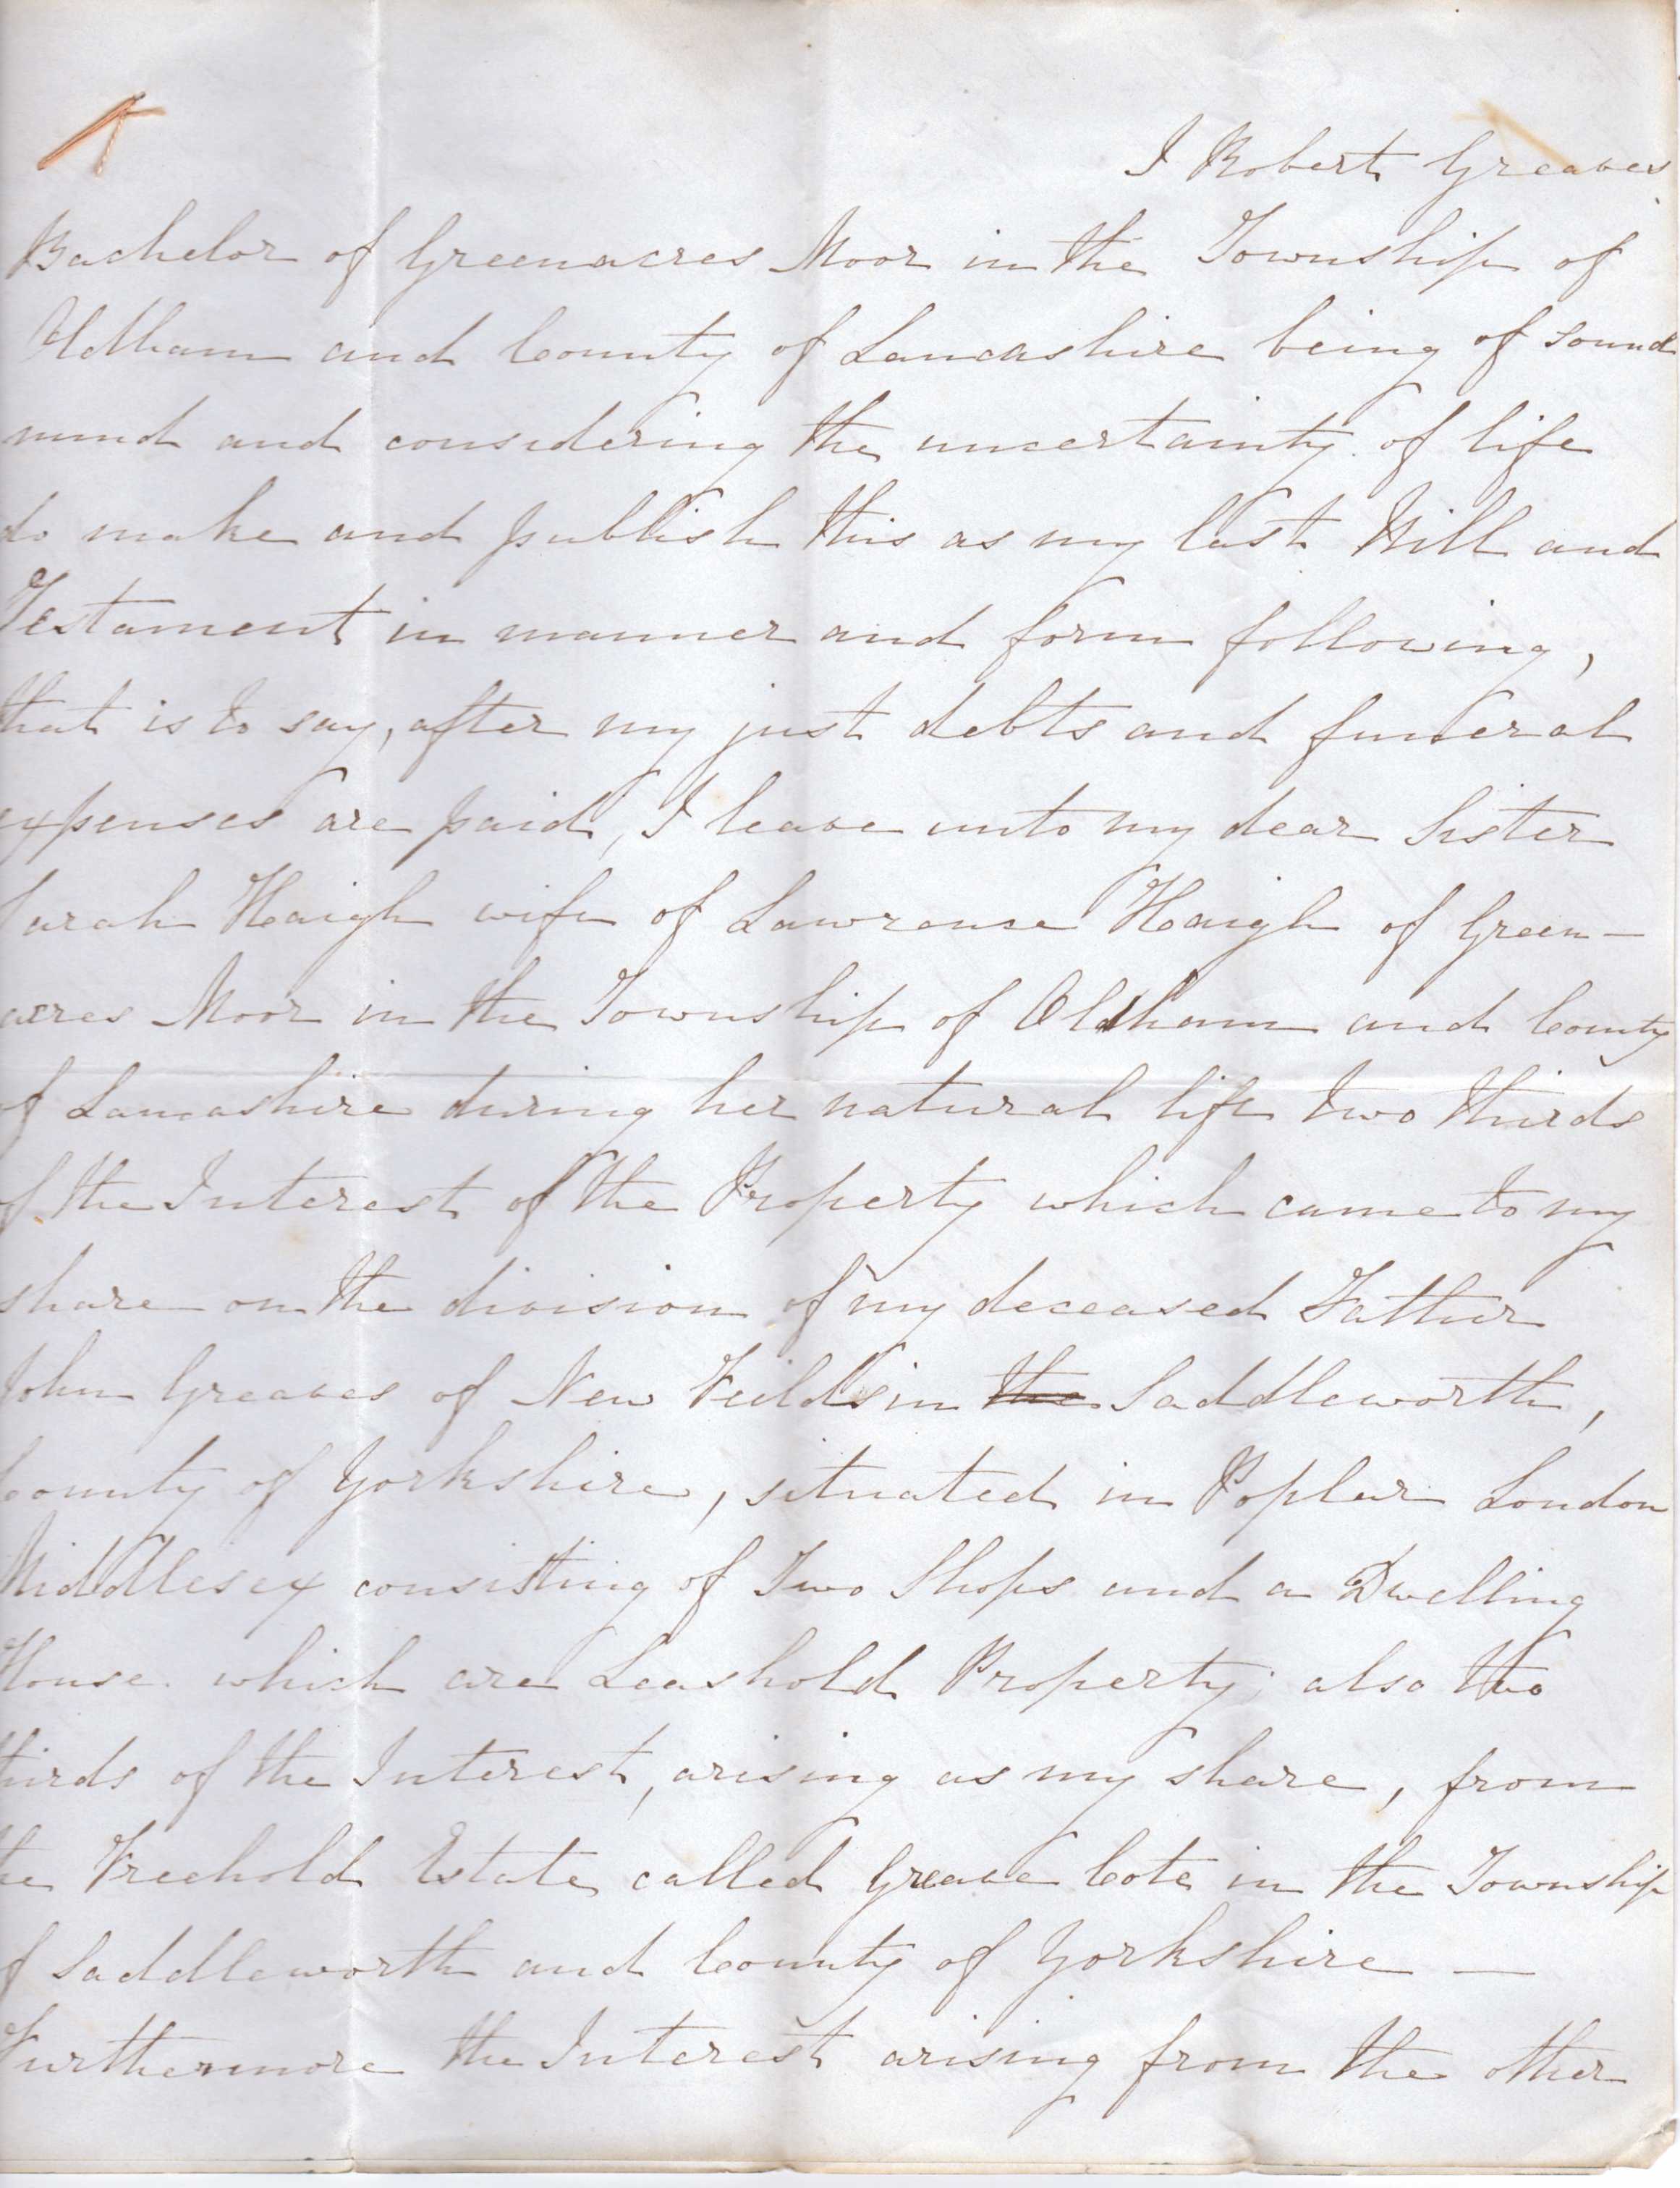 I Robert Greaves
Bachelor of Greenacres Moor in the Township of
Oldham and County of Lancashire being of sound
mind and considering the uncertainty of life
do make and publish this as my last Will and
Testament in manner and form following,
that is to say, after my just debts and funeral
expenses are paid, I leave unto my dear Sister
Sarah Haigh wife of Lawrence Haigh of Green-
acres Moor in the Township of Oldham and County
of Lancashire during her natural life two thirds
of the Interest of the Property which came to my
share on the division of my deceased Father
John Greaves of New Feilds in the Saddleworth,
County of Yorkshire, situated in Poplar London
Middlesex consisting of Two Shops and a Dwelling
House which are Leashold Property; also two
thirds of the Interest, arising as my share, from
the Freehold Estate called Greave Cote in the Township
of Saddleworth and County of Yorkshire —
Furthermore the Interest arising from the other